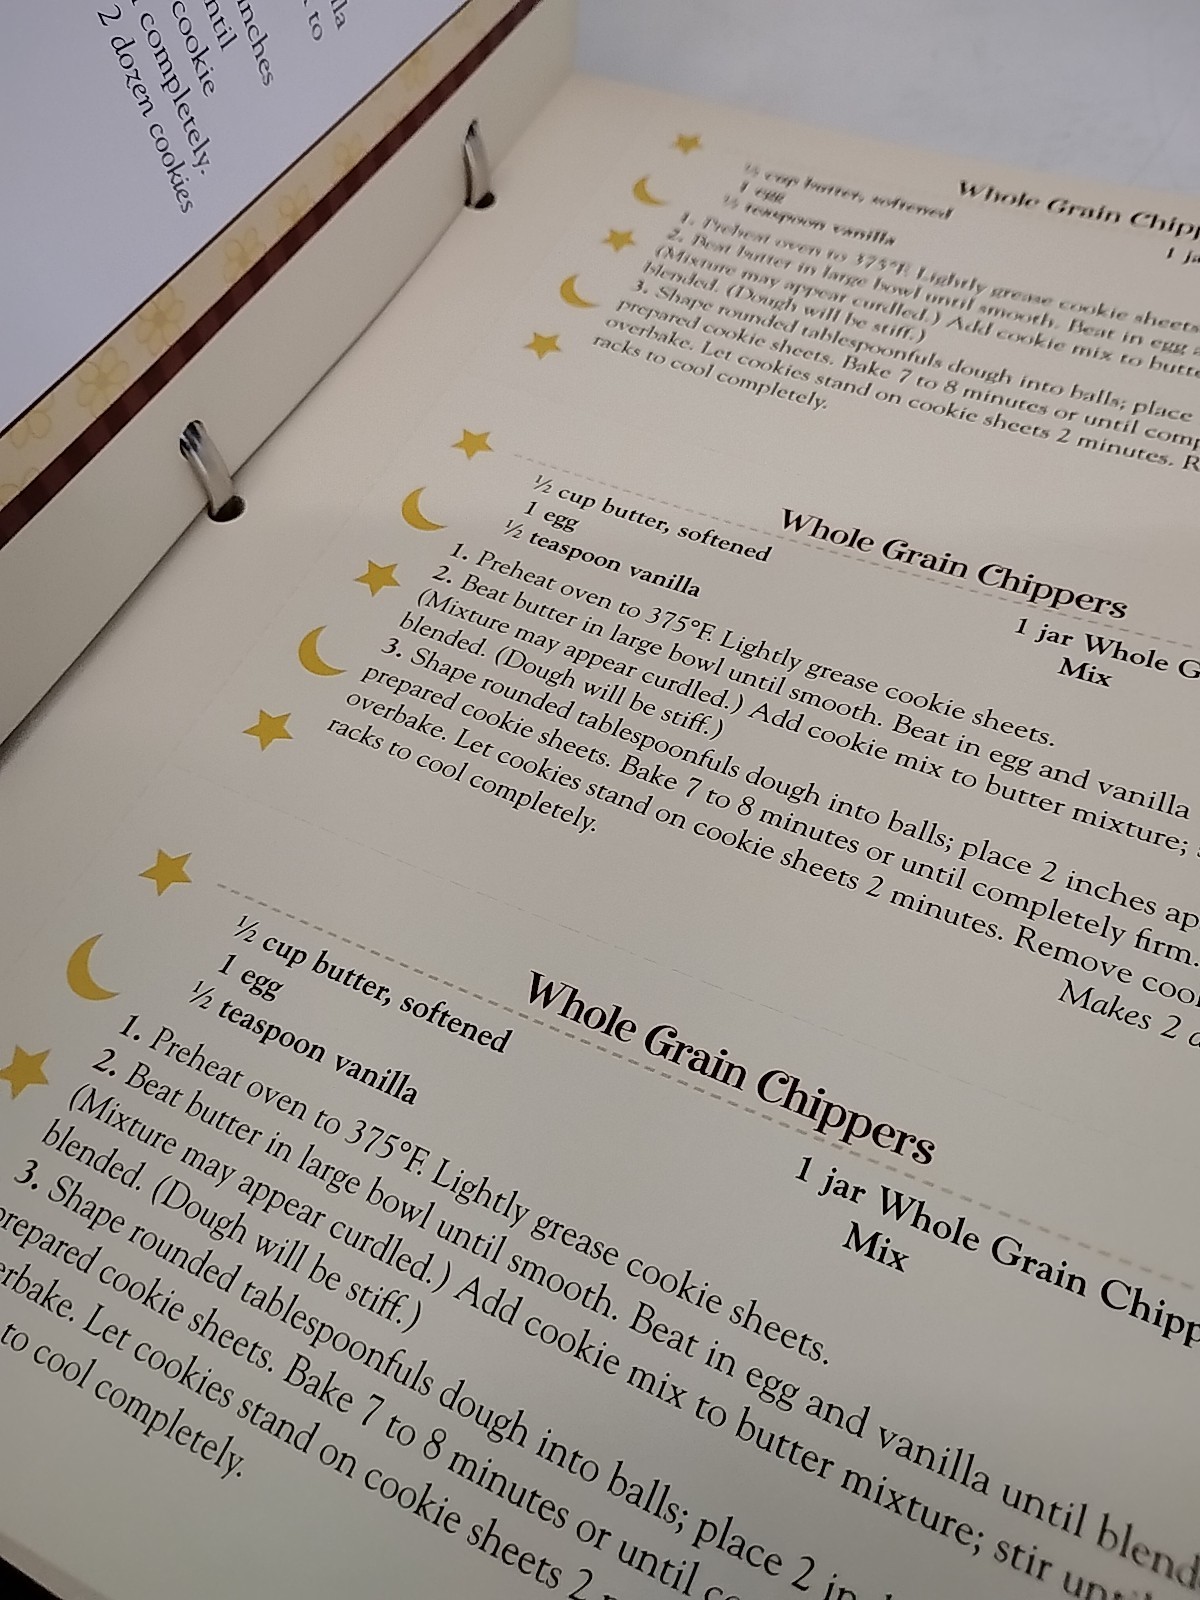 la
to
inches
ntil
cookie
completely.
2 dozen cookies
Whole Grain Chipp
½ cup butter, softened
1 ja
1 egg
½ teaspoon vanilla
1. Preheat oven to 375°F. Lightly grease cookie sheets
2. Beat butter in large bowl until smooth. Beat in egg a
(Mixture may appear curdled.) Add cookie mix to butte
blended. (Dough will be stiff.)
3. Shape rounded tablespoonfuls dough into balls; place
prepared cookie sheets. Bake 7 to 8 minutes or until comp
overbake. Let cookies stand on cookie sheets 2 minutes. R
racks to cool completely.
Whole Grain Chippers
½ cup butter, softened
1 jar Whole G
1 egg
Mix
½ teaspoon vanilla
1. Preheat oven to 375°F. Lightly grease cookie sheets.
2. Beat butter in large bowl until smooth. Beat in egg and vanilla
(Mixture may appear curdled.) Add cookie mix to butter mixture; s
blended. (Dough will be stiff.)
3. Shape rounded tablespoonfuls dough into balls; place 2 inches ap
prepared cookie sheets. Bake 7 to 8 minutes or until completely firm.
overbake. Let cookies stand on cookie sheets 2 minutes. Remove cool
racks to cool completely.
Makes 2 d
Whole Grain Chippers
½ cup butter, softened
1 jar Whole Grain Chipp
1 egg
Mix
½ teaspoon vanilla
1. Preheat oven to 375°F. Lightly grease cookie sheets.
2. Beat butter in large bowl until smooth. Beat in egg and vanilla until blend
(Mixture may appear curdled.) Add cookie mix to butter mixture; stir until
blended. (Dough will be stiff.)
3. Shape rounded tablespoonfuls dough into balls; place 2 in
prepared cookie sheets. Bake 7 to 8 minutes or until co
erbake. Let cookies stand on cookie sheets 2 m
to cool completely.